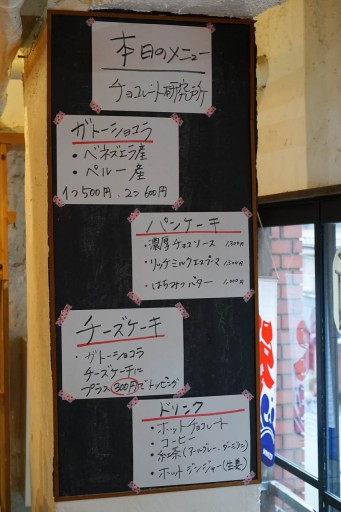 本日のメニュー
チョコレート研究所
ガトーショコラ
・ベネズエラ産
・ペルー産
1つ500円.2つ600円
パンケーキ
・濃厚チョコソース 1,300円
・リッチミルクエスプーマ 1,300円
・はちみつバター 1,000円
チーズケーキ
・ガトーショコラ
チーズケーキに
プラス300円でトッピング
ドリンク
・ホットチョコレート
・コーヒー
・紅茶(アールグレー.ダージリン)
・ホットジンジャー(生姜)